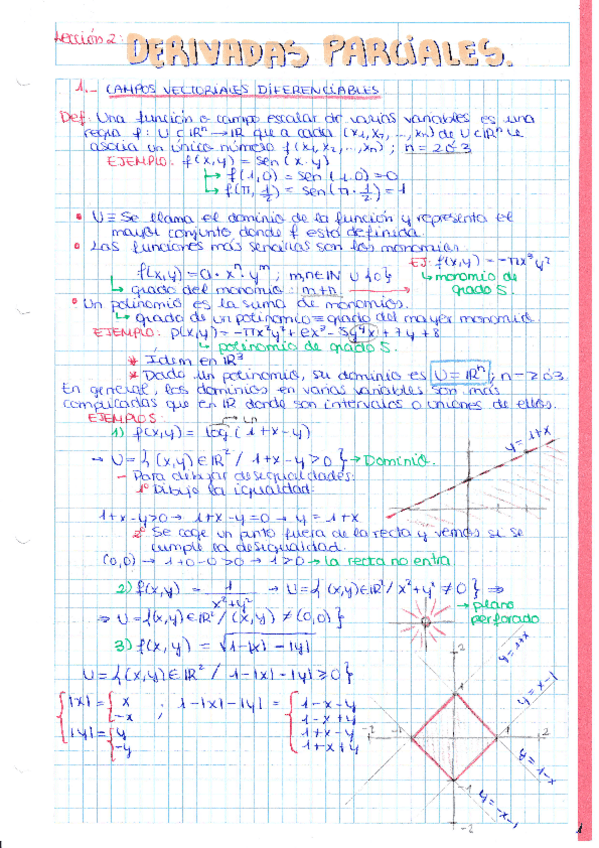 Lección 2:
DERIVADAS PARCIALES.
1.- CAMPOS VECTORIALES DIFERENCIABLES
Def: Una función o campo escalar de varias variables es una
regla f: U⊂ℝⁿ→ℝ que a cada (x₁,x₂,...,xₙ) de U⊂ℝⁿ le
asocia un único número f(x₁,x₂,...,xₙ); n=2 ó 3
EJEMPLO: f(x,y) = sen(x·y)
↳ f(1,0) = sen(1·0)=0
↳ f(π,½) = sen(π·½)=1
• U ≡ Se llama el dominio de la función y representa el
mayor conjunto donde f está definida.
• Las funciones más sencillas son los monomios:
f(x,y)=a·xⁿ·yᵐ; m,n∈ℕ∪{0}
EJ: f(x,y)=-πx³y²
↳ monomio de
grado 5.
↳ grado del monomio: m+n
• Un polinomio es la suma de monomios.
↳ grado de un polinomio ≡ grado del mayor monomio.
EJEMPLO: p(x,y)=-πx²y²+ex³-5y⁴x+7y+8
↳ polinomio de grado 5.
* Ídem en ℝ³
* Dado un polinomio, su dominio es U=ℝⁿ; n->2 ó 3
En general, los dominios en varias variables son más
complicados que en ℝ donde son intervalos o uniones de ellos.
EJEMPLOS:
Ln
1) f(x,y) = log(1+x-y)
→ U={(x,y)∈ℝ² / 1+x-y>0} → Dominio.
y=1+x
- Para dibujar desigualdades:
1º Dibujo la igualdad:
1+x-y>0 → 1+x-y=0 → y=1+x
2º Se coge un punto fuera de la recta y vemos si se
cumple la desigualdad.
(0,0) → 1+0-0>0 → 1>0 → la recta no entra
2) f(x,y) = 1/(x²+y²) → U={(x,y)∈ℝ² / x²+y²≠0} ⇒
⇒ U={(x,y)∈ℝ² / (x,y)≠(0,0)}
→ plano
perforado
3) f(x,y) = √(1-|x|-|y|)
U={(x,y)∈ℝ² / 1-|x|-|y|≥0}
|x|={x
-x
|y|={y
-y
; 1-|x|-|y|={1-x-y
1-x+y
1+x-y
1+x+y
y=1+x
y=x-1
y=1-x
y=-x-1
2
1
-2
-1
1
2
-1
-2
1